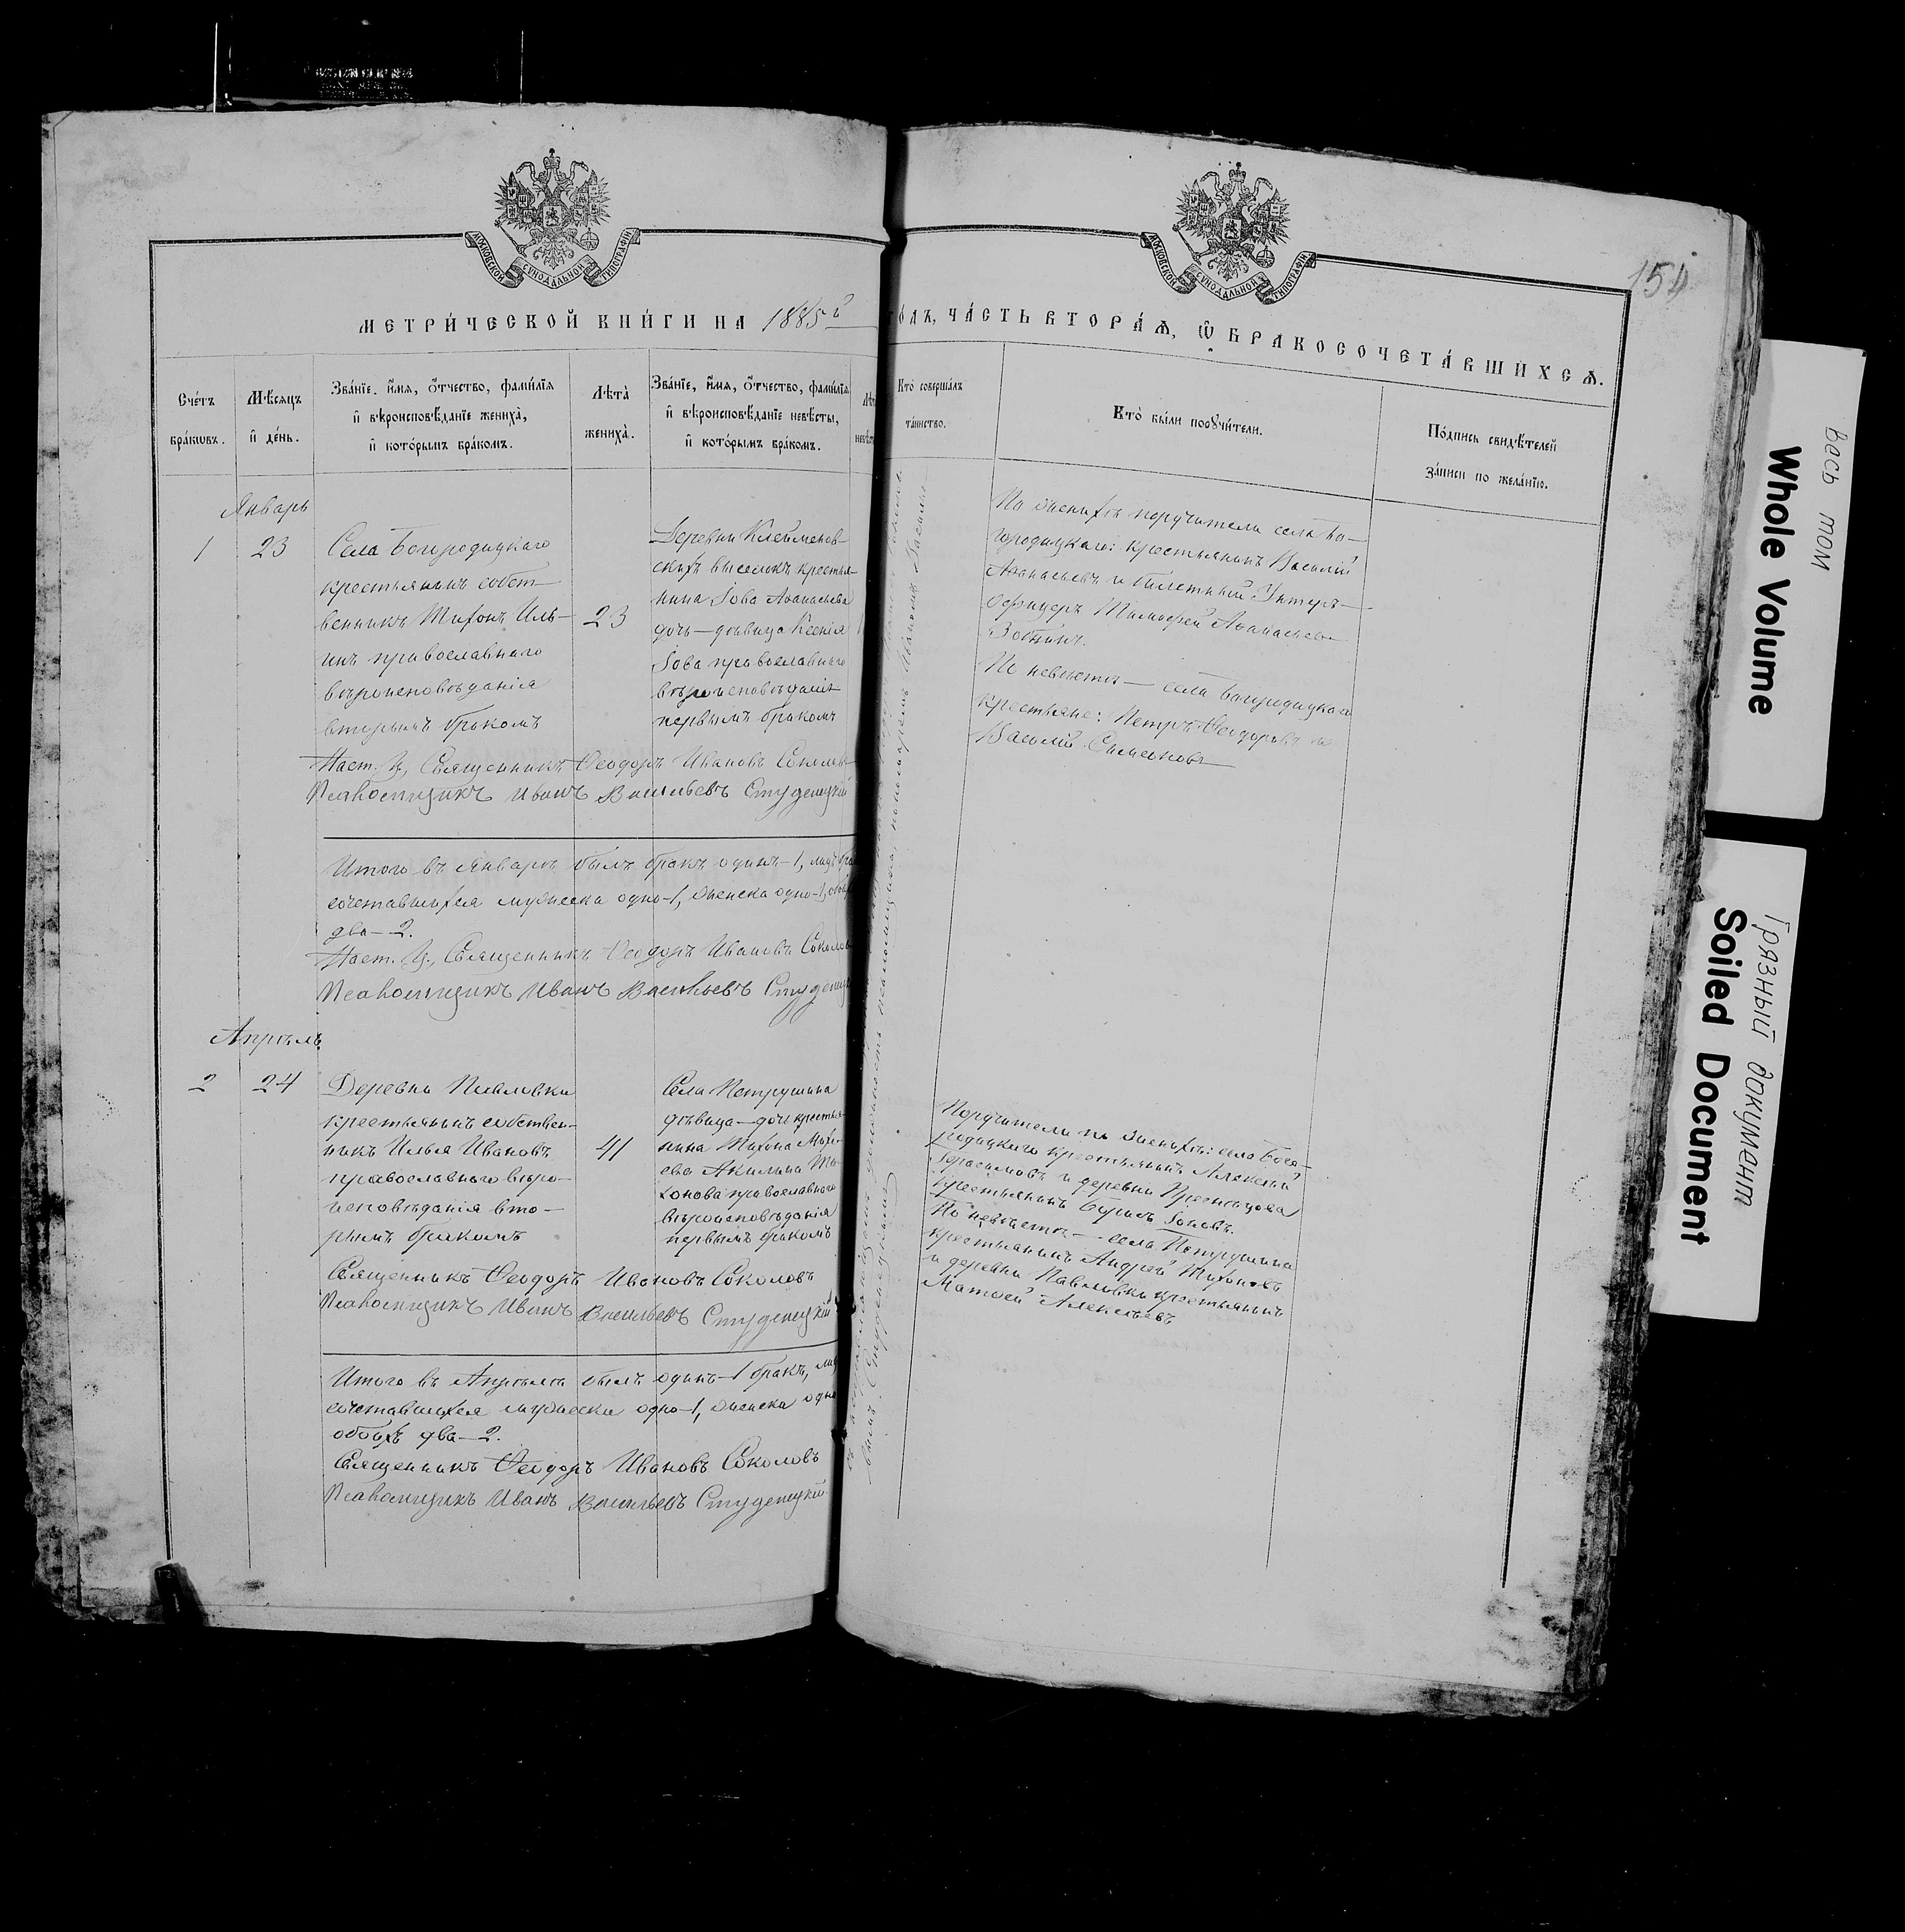 МОСКОВСКОЙ СУНОДАЛЬНОЙ ТИПОГРАФІИ
МОСКОВСКОЙ СУНОДАЛЬНОЙ ТИПОГРАФІИ
154
МЕТРИ́ЧЕСКОЙ КНИ́ГИ НА 1885й
ГОДЪ, ЧА́СТЬ ВТОРА́Ѧ, Ѡ БРАКОСОЧЕТА́ВШИХСѦ.
Сче́тъ
бра́кѡвъ.
Мѣ́сяцъ
и҆ де́нь.
Зва́нїе, и҆́мя, ѻ҆́тчество, фамѝлїя
и҆ вѣроисповѣ́данїе жениха̀,
и҆ кото́рымъ бра́комъ.
Лѣта̀
жениха̀.
Зва́нїе, и҆́мя, ѻ҆́тчество, фамѝлїя
и҆ вѣроисповѣ́данїе невѣ́сты,
и҆ кото́рымъ бра́комъ.
Кто̀ соверша́лъ
та́инство.
Кто̀ бы́ли порꙋчи́тели.
По́дпись свидѣ́телей
за́писи по жела́нїю.
Январь
1
23
Села Богородицкаго
крестьянинъ собст-
венникъ Тихонъ Иль-
инъ православнаго
вѣроисповѣданія
вторымъ бракомъ
23
Деревни Клейменов-
скихъ выселокъ крестья-
нина Іова Аѳанасьева
дочь—дѣвица Ксенія
Іова православнаго
вѣроисповѣданія
первымъ бракомъ
По женихѣ поручители села Бо-
городицкаго: крестьянинъ Василій
Аѳанасьевъ и билетный Унтеръ-
Офицеръ Тимоѳей Аѳанасьевъ
По невѣстѣ— села Богородицкаго
крестьяне: Петръ Ѳеодоровъ и
Василій Симеоновъ
Наст. Ц., Священникъ Ѳеодоръ Ивановъ Соколовъ
Псаломщикъ Иванъ Васильевъ Студенецкій
Итого въ Январѣ былъ бракъ одинъ—1, лицъ
сочетавшихся мужеска одно—1, женска одно—1,
два—2.
Наст. Ц., Священникъ Ѳеодоръ Ивановъ Соколовъ
Псаломщикъ Иванъ Васильевъ
Апрѣль
2
24
Деревни Павловки
крестьянинъ собствен-
никъ Илья Ивановъ
православнаго вѣро-
исповѣданія вто-
рымъ бракомъ
41
Села Петрушина
дѣвица—дочь крестья-
нина Тихона Михе-
ева Акилина Ти-
хонова православнаго
вѣроисповѣданія
первымъ бракомъ
Поручители по женихѣ: села Бого-
родицкаго крестьянинъ Алексѣй
Герасимовъ и деревни
крестьянинъ Борисъ Іоновъ.
По невѣстѣ— села Петрушина
крестьянинъ Андрей Тихоновъ
и деревни Павловки крестьянинъ
Матѳей Алексѣевъ
Священникъ Ѳеодоръ Ивановъ Соколовъ
Псаломщикъ Иванъ Васильевъ Студенецкій
Итого въ Апрѣлѣ былъ одинъ—1 бракъ,
сочетавшихся мужеска одно—1, женска одно
обоихъ два—2.
Священникъ Ѳеодоръ Ивановъ Соколовъ
Псаломщикъ Иванъ Васильевъ Студенецкій
весь том
Whole Volume
Грязный документ
Soiled Document